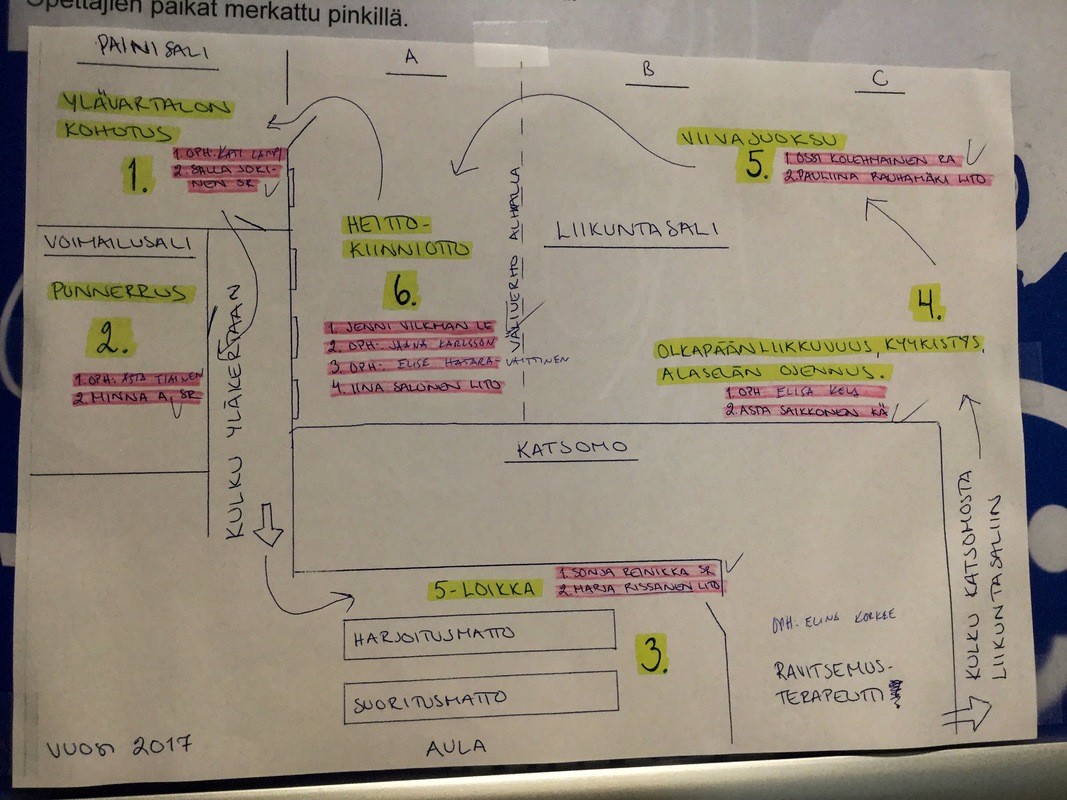 Opettajien paikat merkattu pinkillä.
PAINISALI
A
B
C
YLÄVARTALON
KOHOTUS
1.
1. OPH. KATI LAMPI
2. SALLA JOKI-
NEN SR
VIIVAJUOKSU
5.
1. OSSI KOLEHMAINEN RA
2. PAULIINA RAUHAMÄKI LITO
VOIMAILUSALI
PUNNERRUS
2.
1. OPH. ASTA TIAINEN
2. MINNA A, SR
KULKU YLÄKERTAAN
HEITTO-
KIINNIOTTO
6.
1. JENNI VILKMAN LE
2. OPH. JAANA KARLSSON
3. OPH. ELISE HATARA-VAITTINEN
4. IINA SALONEN LITO
VÄLIVERHO ALHAALLA
LIIKUNTASALI
4.
OLKAPÄÄN LIIKKUVUUS, KYYKISTYS,
ALASELÄN OJENNUS.
1. OPH. ELISA
2. ASTA SAIKKONEN KÄ
KATSOMO
5-LOIKKA
1. SONJA REINIKKA SR
2. MARJA RISSANEN LITO
HARJOITUSMATTO
SUORITUSMATTO
3.
OPH. ELINA KORKEE
RAVITSEMUS-
TERAPEUTTI
KULKU KATSOMOSTA
LIIKUNTASALIIN
VUOSI 2017
AULA